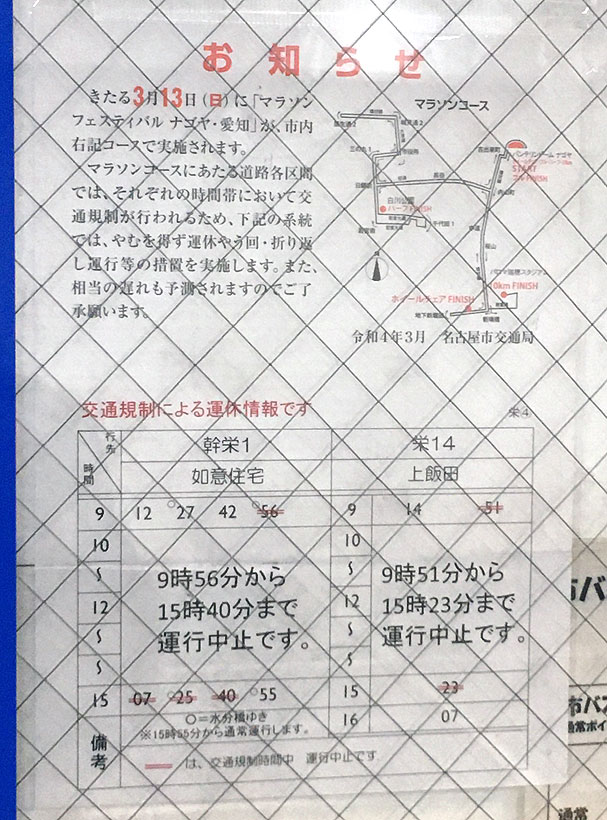 お知らせ
きたる3月13日(日)に「マラソン
フェスティバル ナゴヤ・愛知」が、市内
右記コースで実施されます。
マラソンコースにあたる道路各区間
では、それぞれの時間帯において交
通規制が行われるため、下記の系統
では、やむを得ず運休やう回・折り返
し運行等の措置を実施します。また、
相当の遅れも予測されますのでご了
承願います。
マラソンコース
市役所
バンテリンドーム ナゴヤ
START
白川公園
ハーフFINISH
パロマ瑞穂スタジアム
10km FINISH
ホイールチェア FINISH
地下鉄堀田
新瑞橋
令和4年3月 名古屋市交通局
交通規制による運休情報です
栄④
行先
時間
幹栄1
栄14
如意住宅
上飯田
9 12 ○27 42 ○56 9 14 51
10 10
〜 9時56分から 〜 9時51分から
12 15時40分まで 12 15時23分まで
〜 運行中止です。 〜 運行中止です。
〜 〜
15 07 ○25 40 ○55 15 23
○=水分橋ゆき
※15時55分から通常運行します。
16 07
備考
は、交通規制時間中 運行中止です
市バ
市バス
通常ポイ
通常